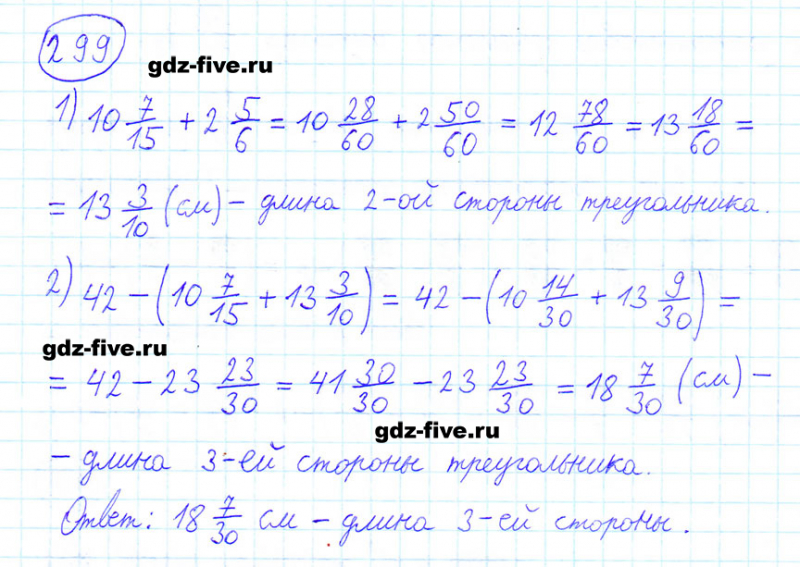 299
gdz-five.ru
1) 10 7/15 + 2 5/6 = 10 28/60 + 2 50/60 = 12 78/60 = 13 18/60 =
= 13 3/10 (см) – длина 2-ой стороны треугольника.
2) 42 – (10 7/15 + 13 3/10) = 42 – (10 14/30 + 13 9/30) =
gdz-five.ru
= 42 – 23 23/30 = 41 30/30 – 23 23/30 = 18 7/30 (см) –
gdz-five.ru
– длина 3-ей стороны треугольника.
Ответ: 18 7/30 см – длина 3-ей стороны.